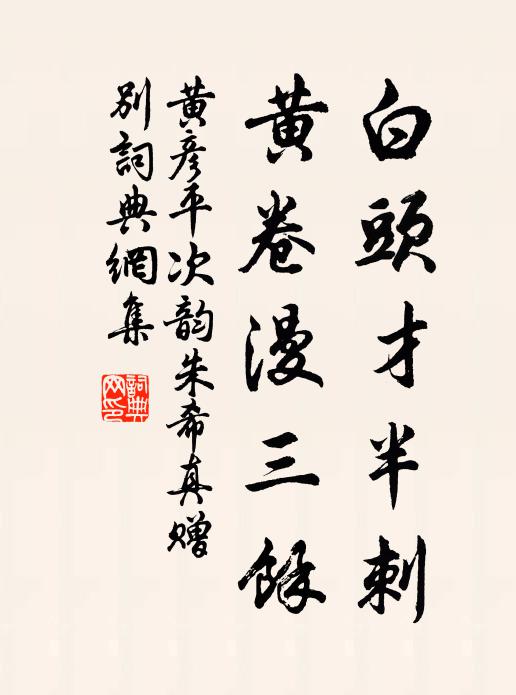 白頭才半刺
黃卷漫三餘
黃彥平次韵朱希真贈
別詞典網集
詞典网印